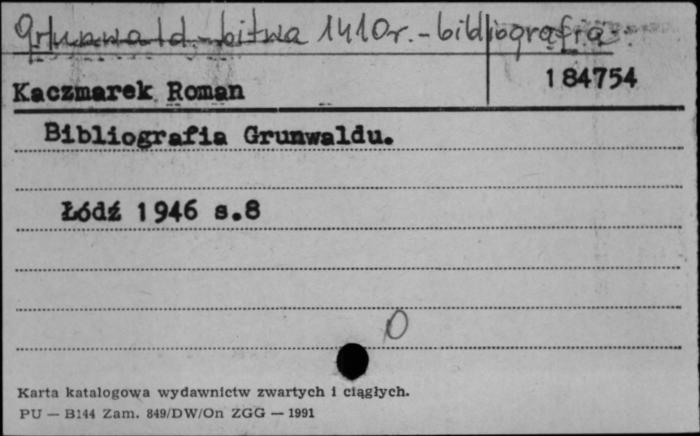 Grunwald - bitwa 1410r. - bibliografia
Kaczmarek Roman
184754
Bibliografia Grunwaldu.
Łódź 1946 s.8
0
Karta katalogowa wydawnictw zwartych i ciągłych.
PU — B144 Zam. 849/DW/On ZGG — 1991